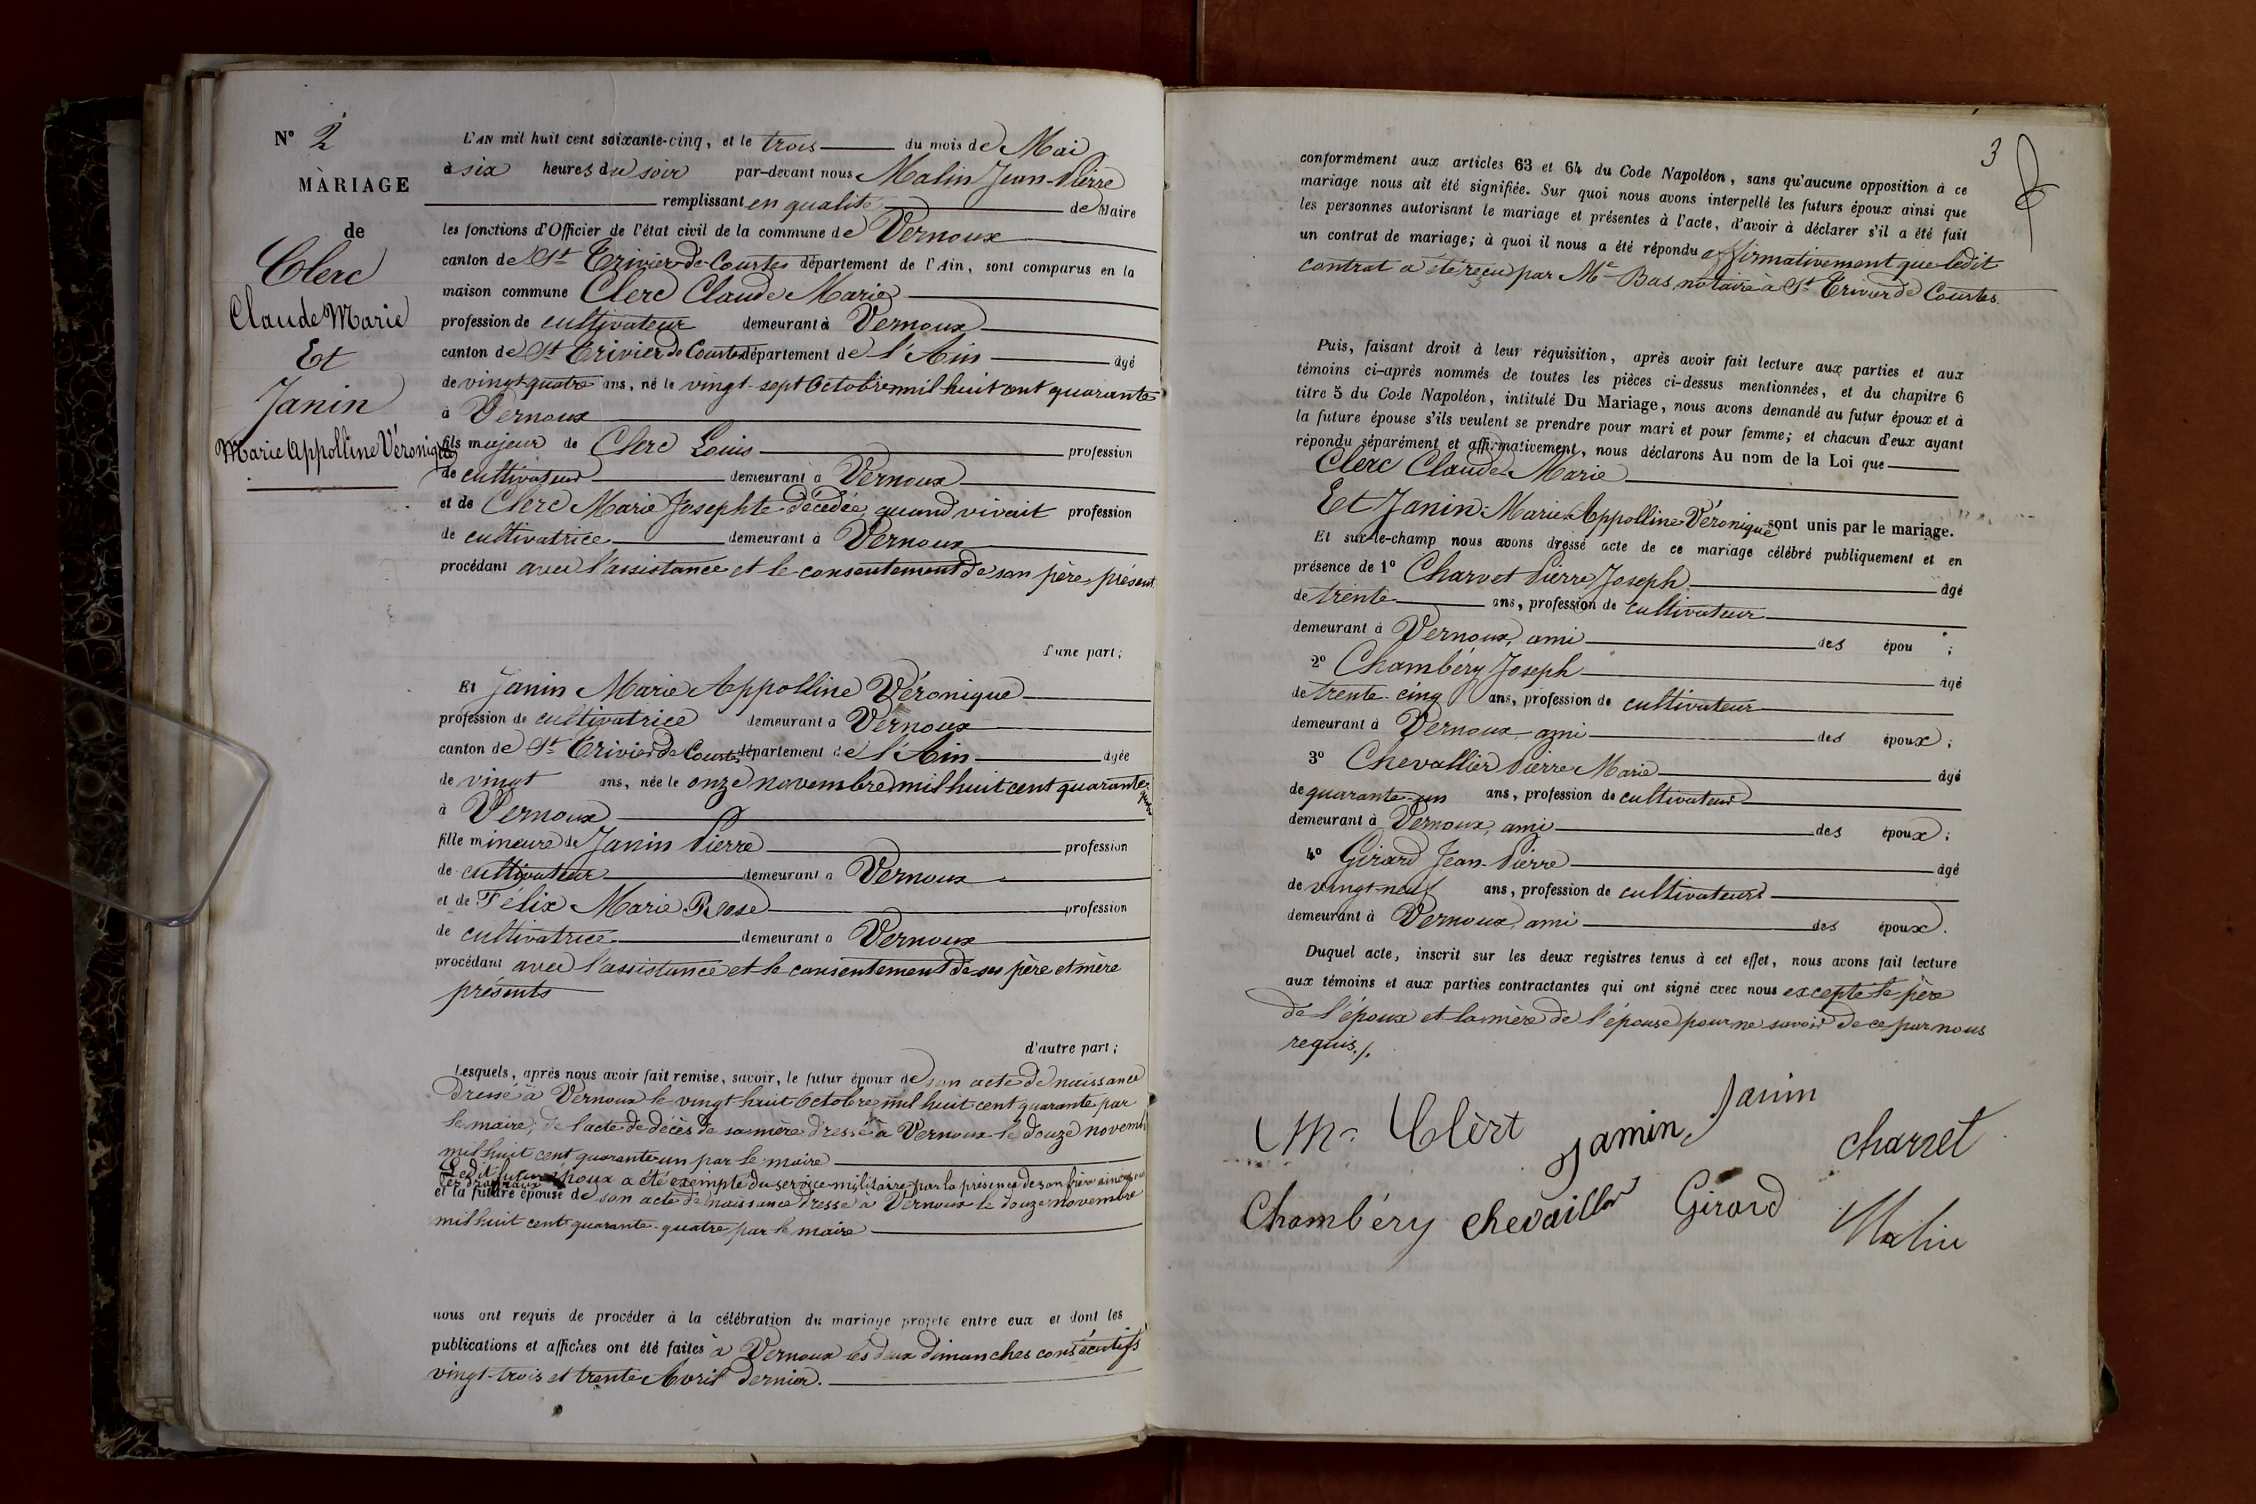 N° 2
MARIAGE
de
Clerc
Claude Marie
Et
Janin
Marie Appolline Véronique
L'AN mil huit cent soixante-cinq, et le trois du mois de Mai
à six heures du soir par-devant nous Malin Jean-Pierre
remplissant en qualité de Maire
les fonctions d'Officier de l'état civil de la commune de Vernoux
canton de St Trivier-de-Courtes département de l'Ain, sont comparus en la
maison commune Clerc Claude Marie
profession de cultivateur demeurant à Vernoux
canton de St Trivier de Courtes département de l'Ain âgé
de vingt quatre ans, né le vingt-sept Octobre mil huit cent quarante
à Vernoux
fils majeur de Clerc Louis profession
de cultivateur demeurant à Vernoux
et de Clerc Marie Josephte décédée, quand vivait profession
de cultivatrice demeurant à Vernoux
procédant avec l'assistance et le consentement de son père, présent
d'une part;
Et Janin Marie Appolline Véronique
profession de cultivatrice demeurant à Vernoux
canton de St Trivier de Courtes département de l'Ain âgée
de vingt ans, née le onze novembre mil huit cent quarante-
à Vernoux
fille mineure de Janin Pierre profession
de cultivateur demeurant à Vernoux
et de Félix Marie Rose profession
de cultivatrice demeurant à Vernoux
procédant avec l'assistance et le consentement de ses père et mère
présents
d'autre part;
Lesquels, après nous avoir fait remise, savoir, le futur époux de son acte de naissance
dressé à Vernoux le vingt huit Octobre mil huit cent quarante par
le maire, de l'acte de décès de sa mère dressé à Vernoux le douze novemb
mil huit cent quarante un par le maire
Ledit futur époux a été exempté du service militaire par la présence de son frère ainé sous
les drapeaux
et la future épouse de son acte de naissance dressé à Vernoux le douze novembre
mil huit cent quarante-quatre par le maire
nous ont requis de procéder à la célébration du mariage projeté entre eux et dont les
publications et affiches ont été faites à Vernoux les deux dimanches consécutifs
vingt-trois et trente Avril dernier.
3
conformément aux articles 63 et 64 du Code Napoléon, sans qu'aucune opposition à ce
mariage nous ait été signifiée. Sur quoi nous avons interpellé les futurs époux ainsi que
les personnes autorisant le mariage et présentes à l'acte, d'avoir à déclarer s'il a été fait
un contrat de mariage; à quoi il nous a été répondu affirmativement que ledit
contrat a été reçu par Me Bas, notaire à St Trivier de Courtes.
Puis, faisant droit à leur réquisition, après avoir fait lecture aux parties et aux
témoins ci-après nommés de toutes les pièces ci-dessus mentionnées, et du chapitre 6
titre 5 du Code Napoléon, intitulé Du Mariage, nous avons demandé au futur époux et à
la future épouse s'ils veulent se prendre pour mari et pour femme; et chacun d'eux ayant
répondu séparément et affirmativement, nous déclarons Au nom de la Loi que
Clerc Claude Marie
Et Janin Marie Appolline Véronique sont unis par le mariage.
Et sur-le-champ nous avons dressé acte de ce mariage célébré publiquement et en
présence de 1° Charvet Pierre Joseph âgé
de trente ans, profession de cultivateur
demeurant à Vernoux, ami des épou ;
2° Chambéry Joseph âgé
de trente-cinq ans, profession de cultivateur
demeurant à Vernoux ami des époux;
3° Chevallier Pierre Marie âgé
de quarante-un ans, profession de cultivateur
demeurant à Vernoux, ami des époux;
4° Girard Jean-Pierre âgé
de vingt-neuf ans, profession de cultivateur
demeurant à Vernoux, ami des époux.
Duquel acte, inscrit sur les deux registres tenus à cet effet, nous avons fait lecture
aux témoins et aux parties contractantes qui ont signé avec nous excepté le père
de l'époux et la mère de l'épouse pour ne savoir de ce par nous
requis./.
Janin
Clèrt Jamin charvet
Chambéry chevaillor Girard Malin